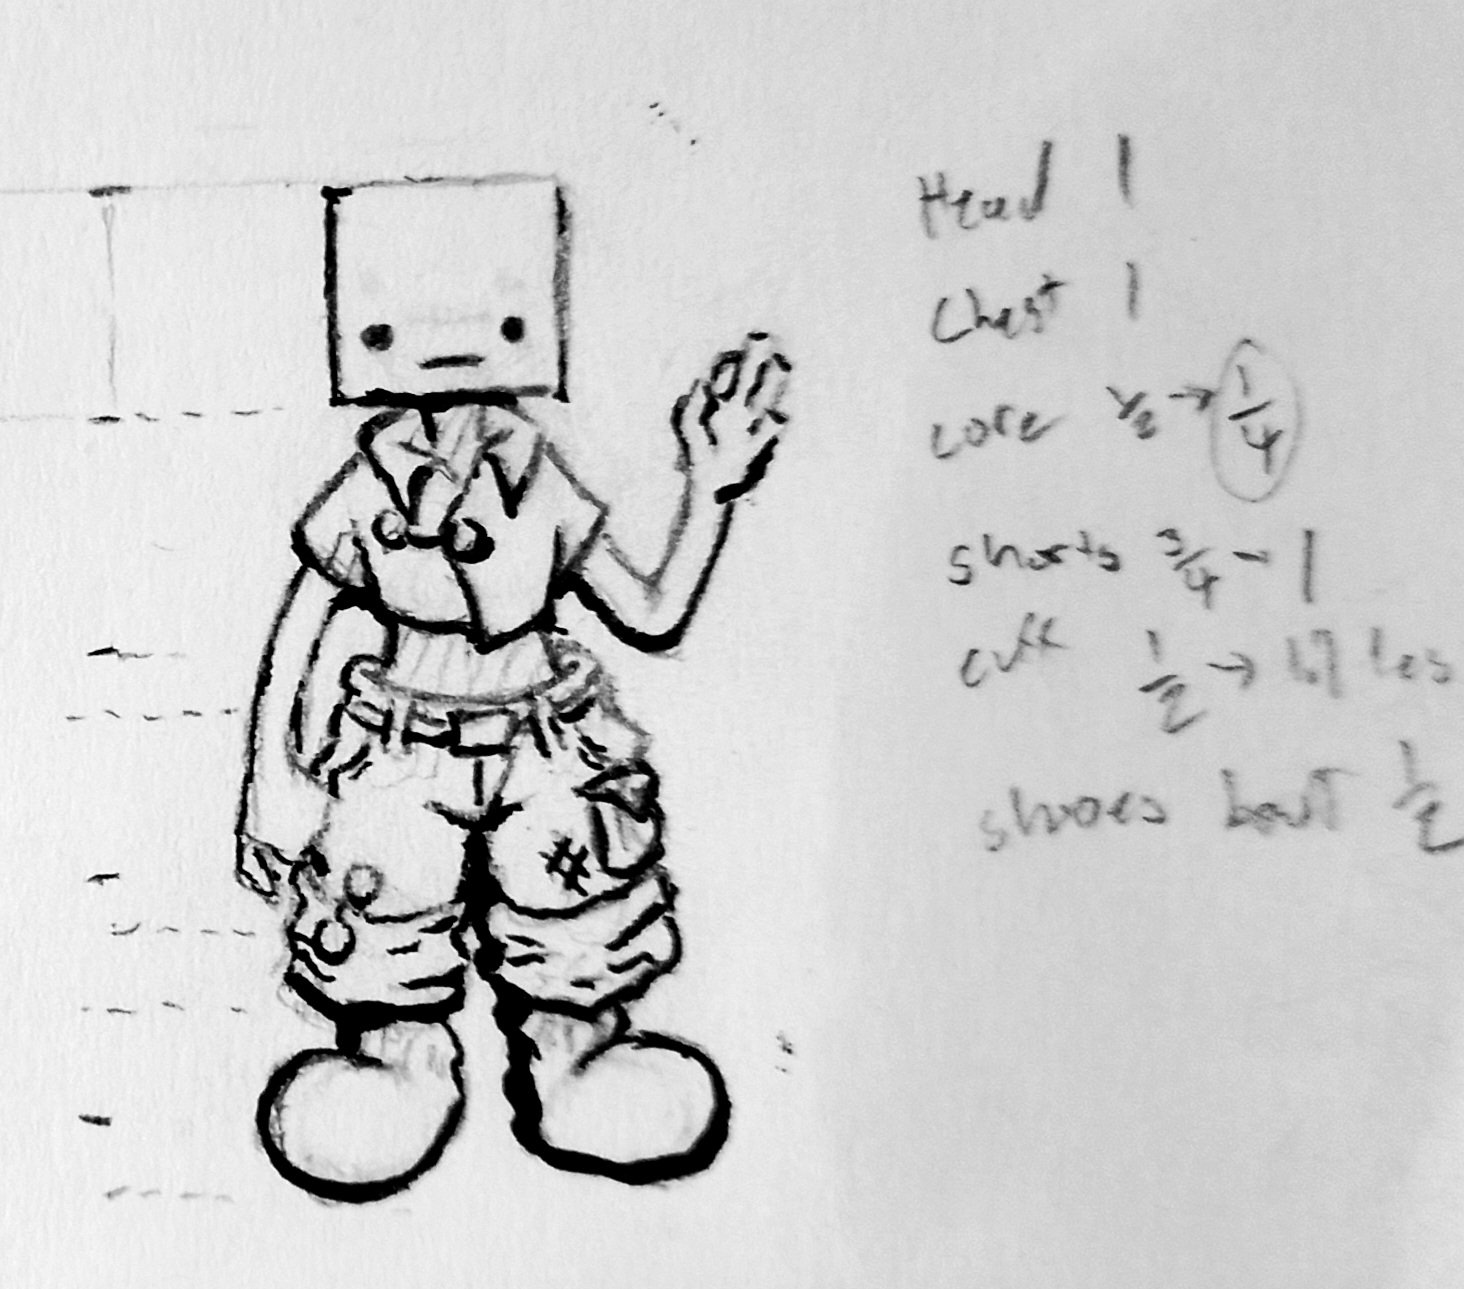 Head 1
Chest 1
core 1/2 → 1/4
shorts 3/4 - 1
cuff 1/2 →
shoes 1/2
#